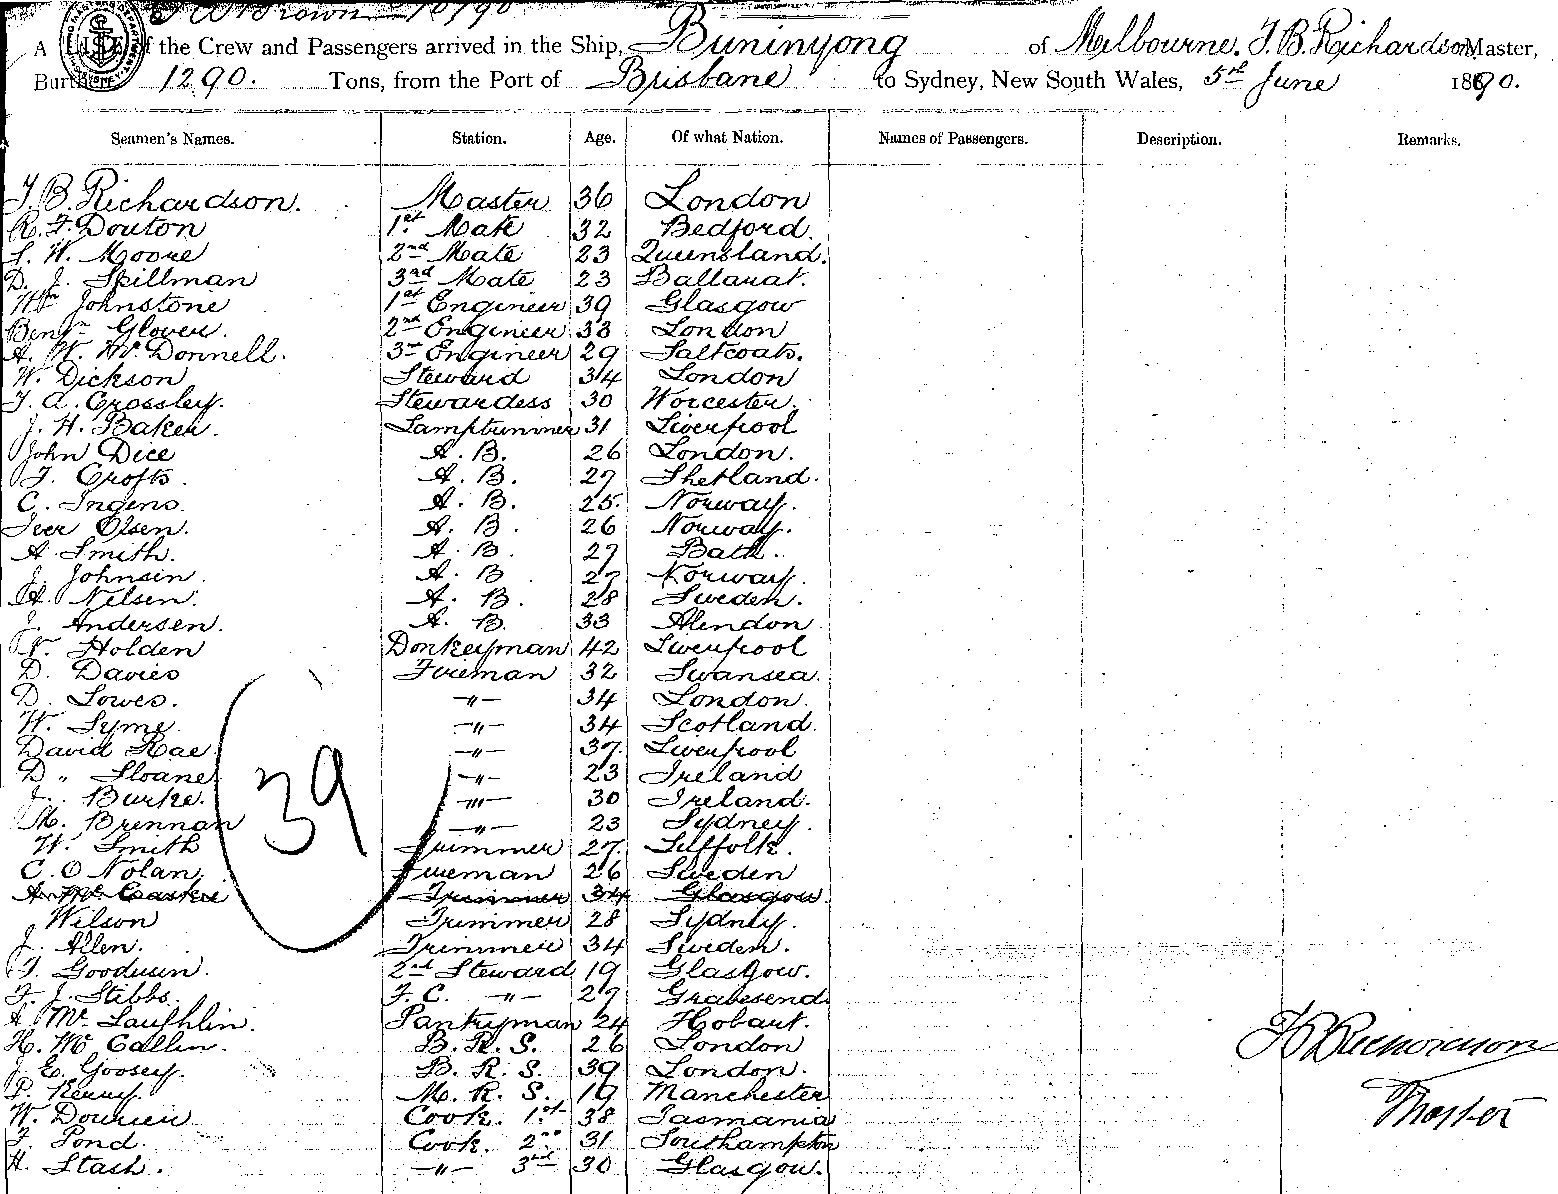 Brown 10/90
A LIST of the Crew and Passengers arrived in the Ship, Buninyong of Melbourne, T. B. Richardson Master,
Burthen 1290. Tons, from the Port of Brisbane to Sydney, New South Wales, 5th June 1890.
Seamen's Names. Station. Age. Of what Nation. Names of Passengers. Description. Remarks.
T. B. Richardson. Master 36 London
R. F. Douton 1st Mate 32 Bedford.
S. W. Moore 2nd Mate 23 Queensland.
D. J. Spillman 3rd Mate 23 Ballarat.
Wm Johnstone 1st Engineer 39 Glasgow
Benjn Glover. 2nd Engineer 33 London
A. W. McDonnell. 3rd Engineer 29 Saltcoats.
W. Dickson Steward 34 London
T. A. Crossley. Stewardess 30 Worcester.
J. H. Baker. Lamptrimmer 31 Liverpool
John Dice A. B. 26 London.
T. Crofts. A. B. 27 Shetland.
C. Ingens. A. B. 25. Norway.
Iver Olsen. A. B. 26 Norway.
A. Smith. A. B. 27 Bath.
J. Johnsen. A. B 27 Norway.
A. Nelsen. A. B. 28 Sweden.
J. Andersen. A. B. 33 Alendon
N. Holden Donkeyman 42 Liverpool
D. Davies Fireman 32 Swansea.
D. Lowes. -"- 34 London.
W. Syme -"- 34 Scotland.
David Rae -"- 37. Liverpool
D " Sloane -"- 23 Ireland
J. Burke. -"- 30 Ireland.
M. Brennan -"- 23 Sydney.
W. Smith Trimmer 27. Suffolk.
C. O Nolan. Fireman 26 Sweden
A. McCaskie Trimmer 34 Glasgow.
Wilson Trimmer 28 Sydney.
J. Allen. Trimmer 34 Sweden.
T. Goodwin. 2nd Steward 19 Glasgow.
F. J. Stibbs. F. C. -"- 27 Gravesend
A. McLaughlin. Pantryman 24 Hobart.
H. McCallin. B. R. S. 26 London
J. E. Goosey. B. R. S. 39 London.
P. Kenny. M. R. S. 19 Manchester
W. Downen Cook. 1st 38 Tasmania
F. Pond. Cook. 2nd 31 Southampton
H. Stash. -"- 3rd 30 Glasgow.
39
T B Richardson
Master